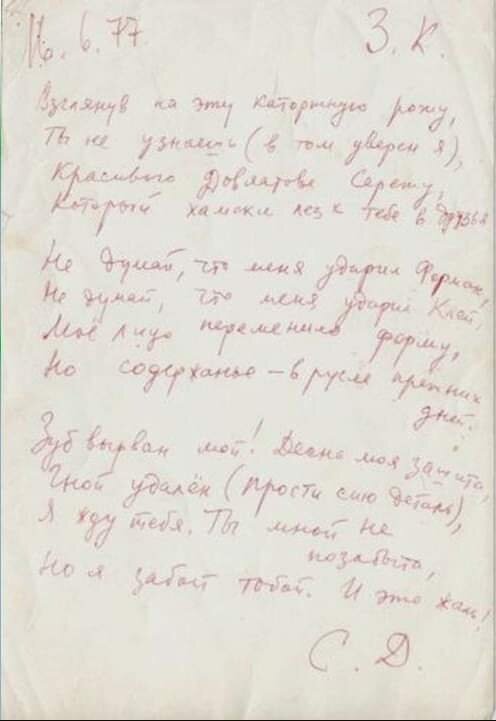 16.6.77. З. К.
Взглянув на эту каторжную рожу,
Ты не узнаешь (в том уверен я),
Красивого Довлатова Сережу,
Который хамски лез к тебе в друзья
Не думай, что меня ударил Форман,
Не думай, что меня ударил Клей,
Моё лицо переменило форму,
Но содержанье – в русле прежних
дней.
Зуб вырван мой! Десна моя зашита,
Гной удалён (прости сию деталь),
Я жду тебя. Ты мной не
позабыта,
Но я забыт тобой. И это жаль!
С. Д.